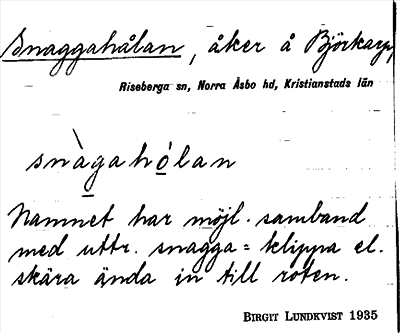 Snaggahålan, åker å Björkarp
Riseberga sn, Norra Åsbo hd, Kristianstads län
snàgahólan
Namnet har möjl. samband
med uttr. snagga = klippa el.
skära ända in till roten.
BIRGIT LUNDKVIST 1935